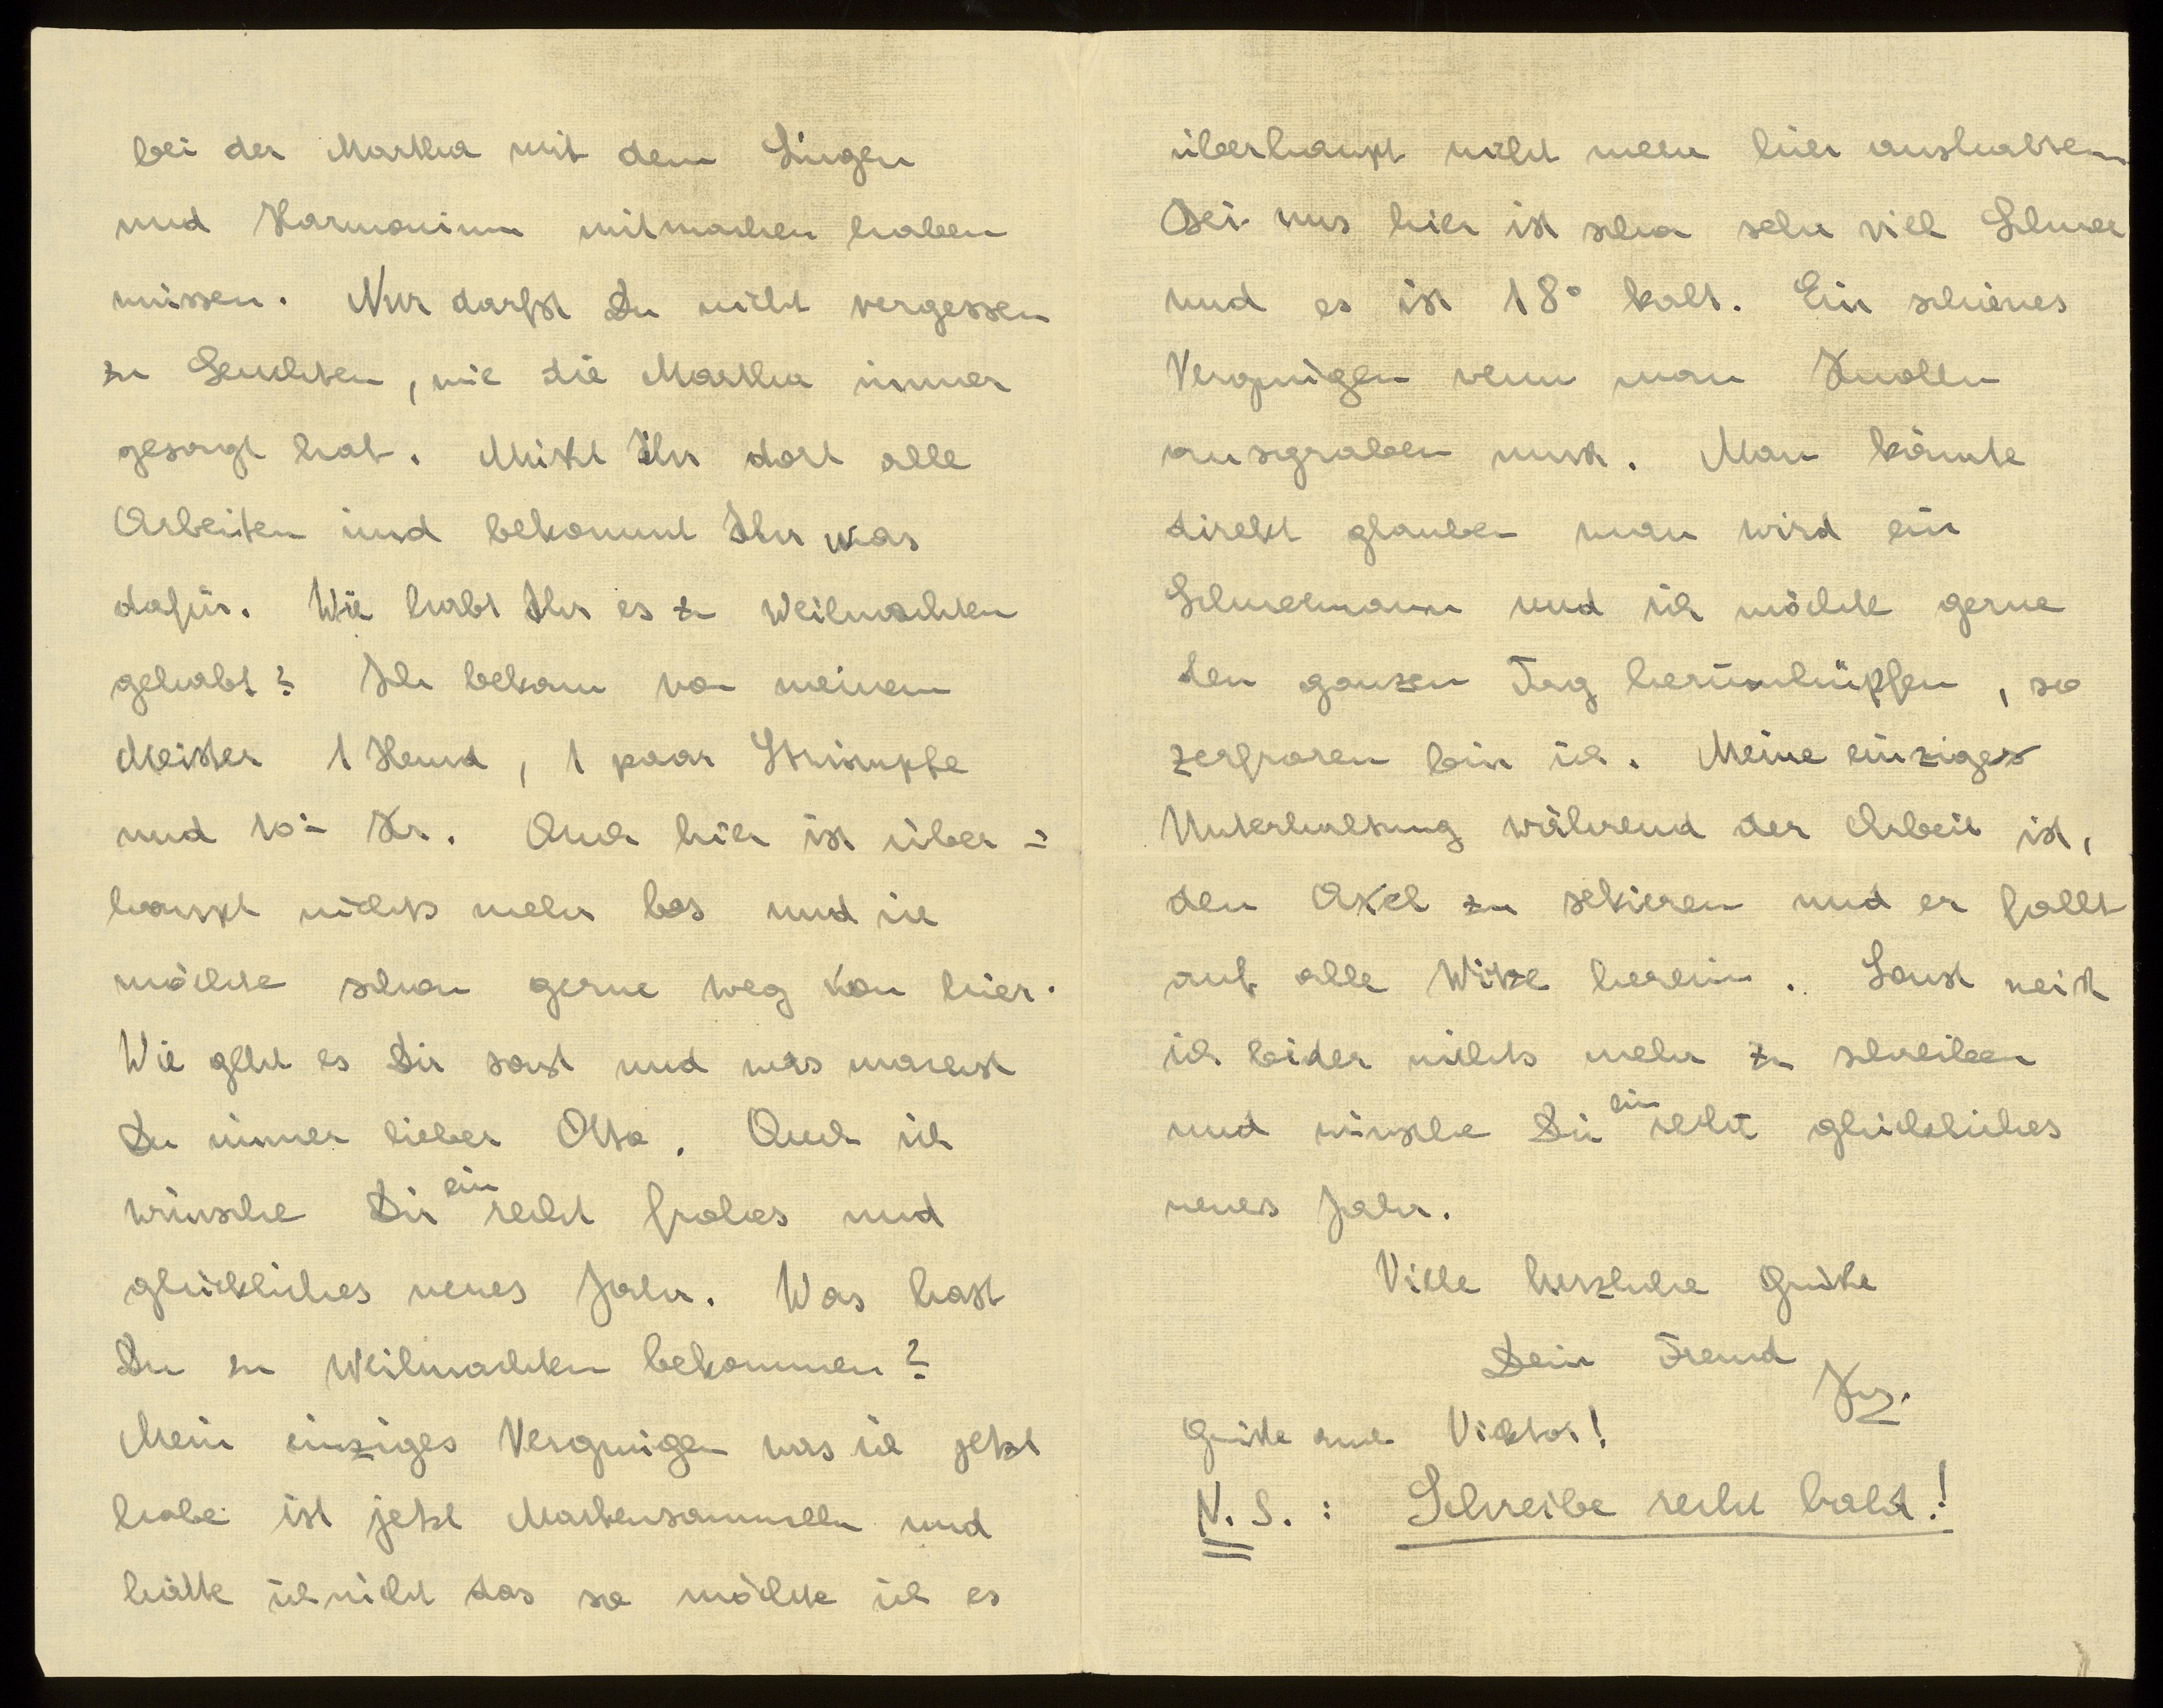 bei der Martha mit dem Singen
und Harmonium mitmachen haben
müssen. Nur darfst Du nicht vergessen
zu Leuchten, wie die Martha immer
gesagt hat. Müsst Ihr dort alle
Arbeiten und bekommt Ihr was
dafür. Wie habt Ihr es zu Weihnachten
gehabt? Ich bekam von meinem
Meister 1 Hemd, 1 paar Strümpfe
und 10.- Kr. Auch hier ist über-
haupt nichts mehr los und ich
möchte schon gerne weg von hier.
Wie geht es Dir sonst und was machst
Du immer lieber Otto. Auch ich
wünsche Dir ein recht frohes und
glückliches neues Jahr. Was hast
Du zu Weihnachten bekommen?
Mein einziges Vergnügen was ich jetzt
habe ist jetzt Markensammelln und
hätte ich nicht das so möchte ich es
überhaupt nicht mehr hier aushalten
Bei uns hier ist schon sehr viel Schnee
und es ist 18° kalt. Ein schönes
Vergnügen wenn man Knollen
ausgraben muss. Man könnte
direkt glauben man wird ein
Schneemann und ich möchte gerne
den ganzen Tag herumhüpfen, so
zerfroren bin ich. Meine einziges
Unterhaltung während der Arbeit ist,
den Axel zu sekieren und er fällt
auf alle Witze herein. Sonst weis
ich leider nichts mehr zu schreiben
und wünsche Dir ein recht glückliches
neues Jahr.
Viele herzliche Grüße
Dein Freund
Grüße auch Viktor!
N.S.: Schreibe recht bald!